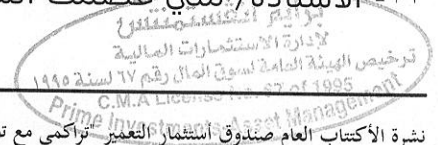 الاستاذة/
برايم انفستمنتس
لإدارة الاستثمارات المالية
ترخيص الهيئة العامة لسوق المال رقم ٦٧ لسنة ١٩٩٥
C.M.A License No. 67 of 1995
Prime Investments Asset Management
نشرة الأكتتاب العام صندوق استثمار التعمير "تراكمي مع